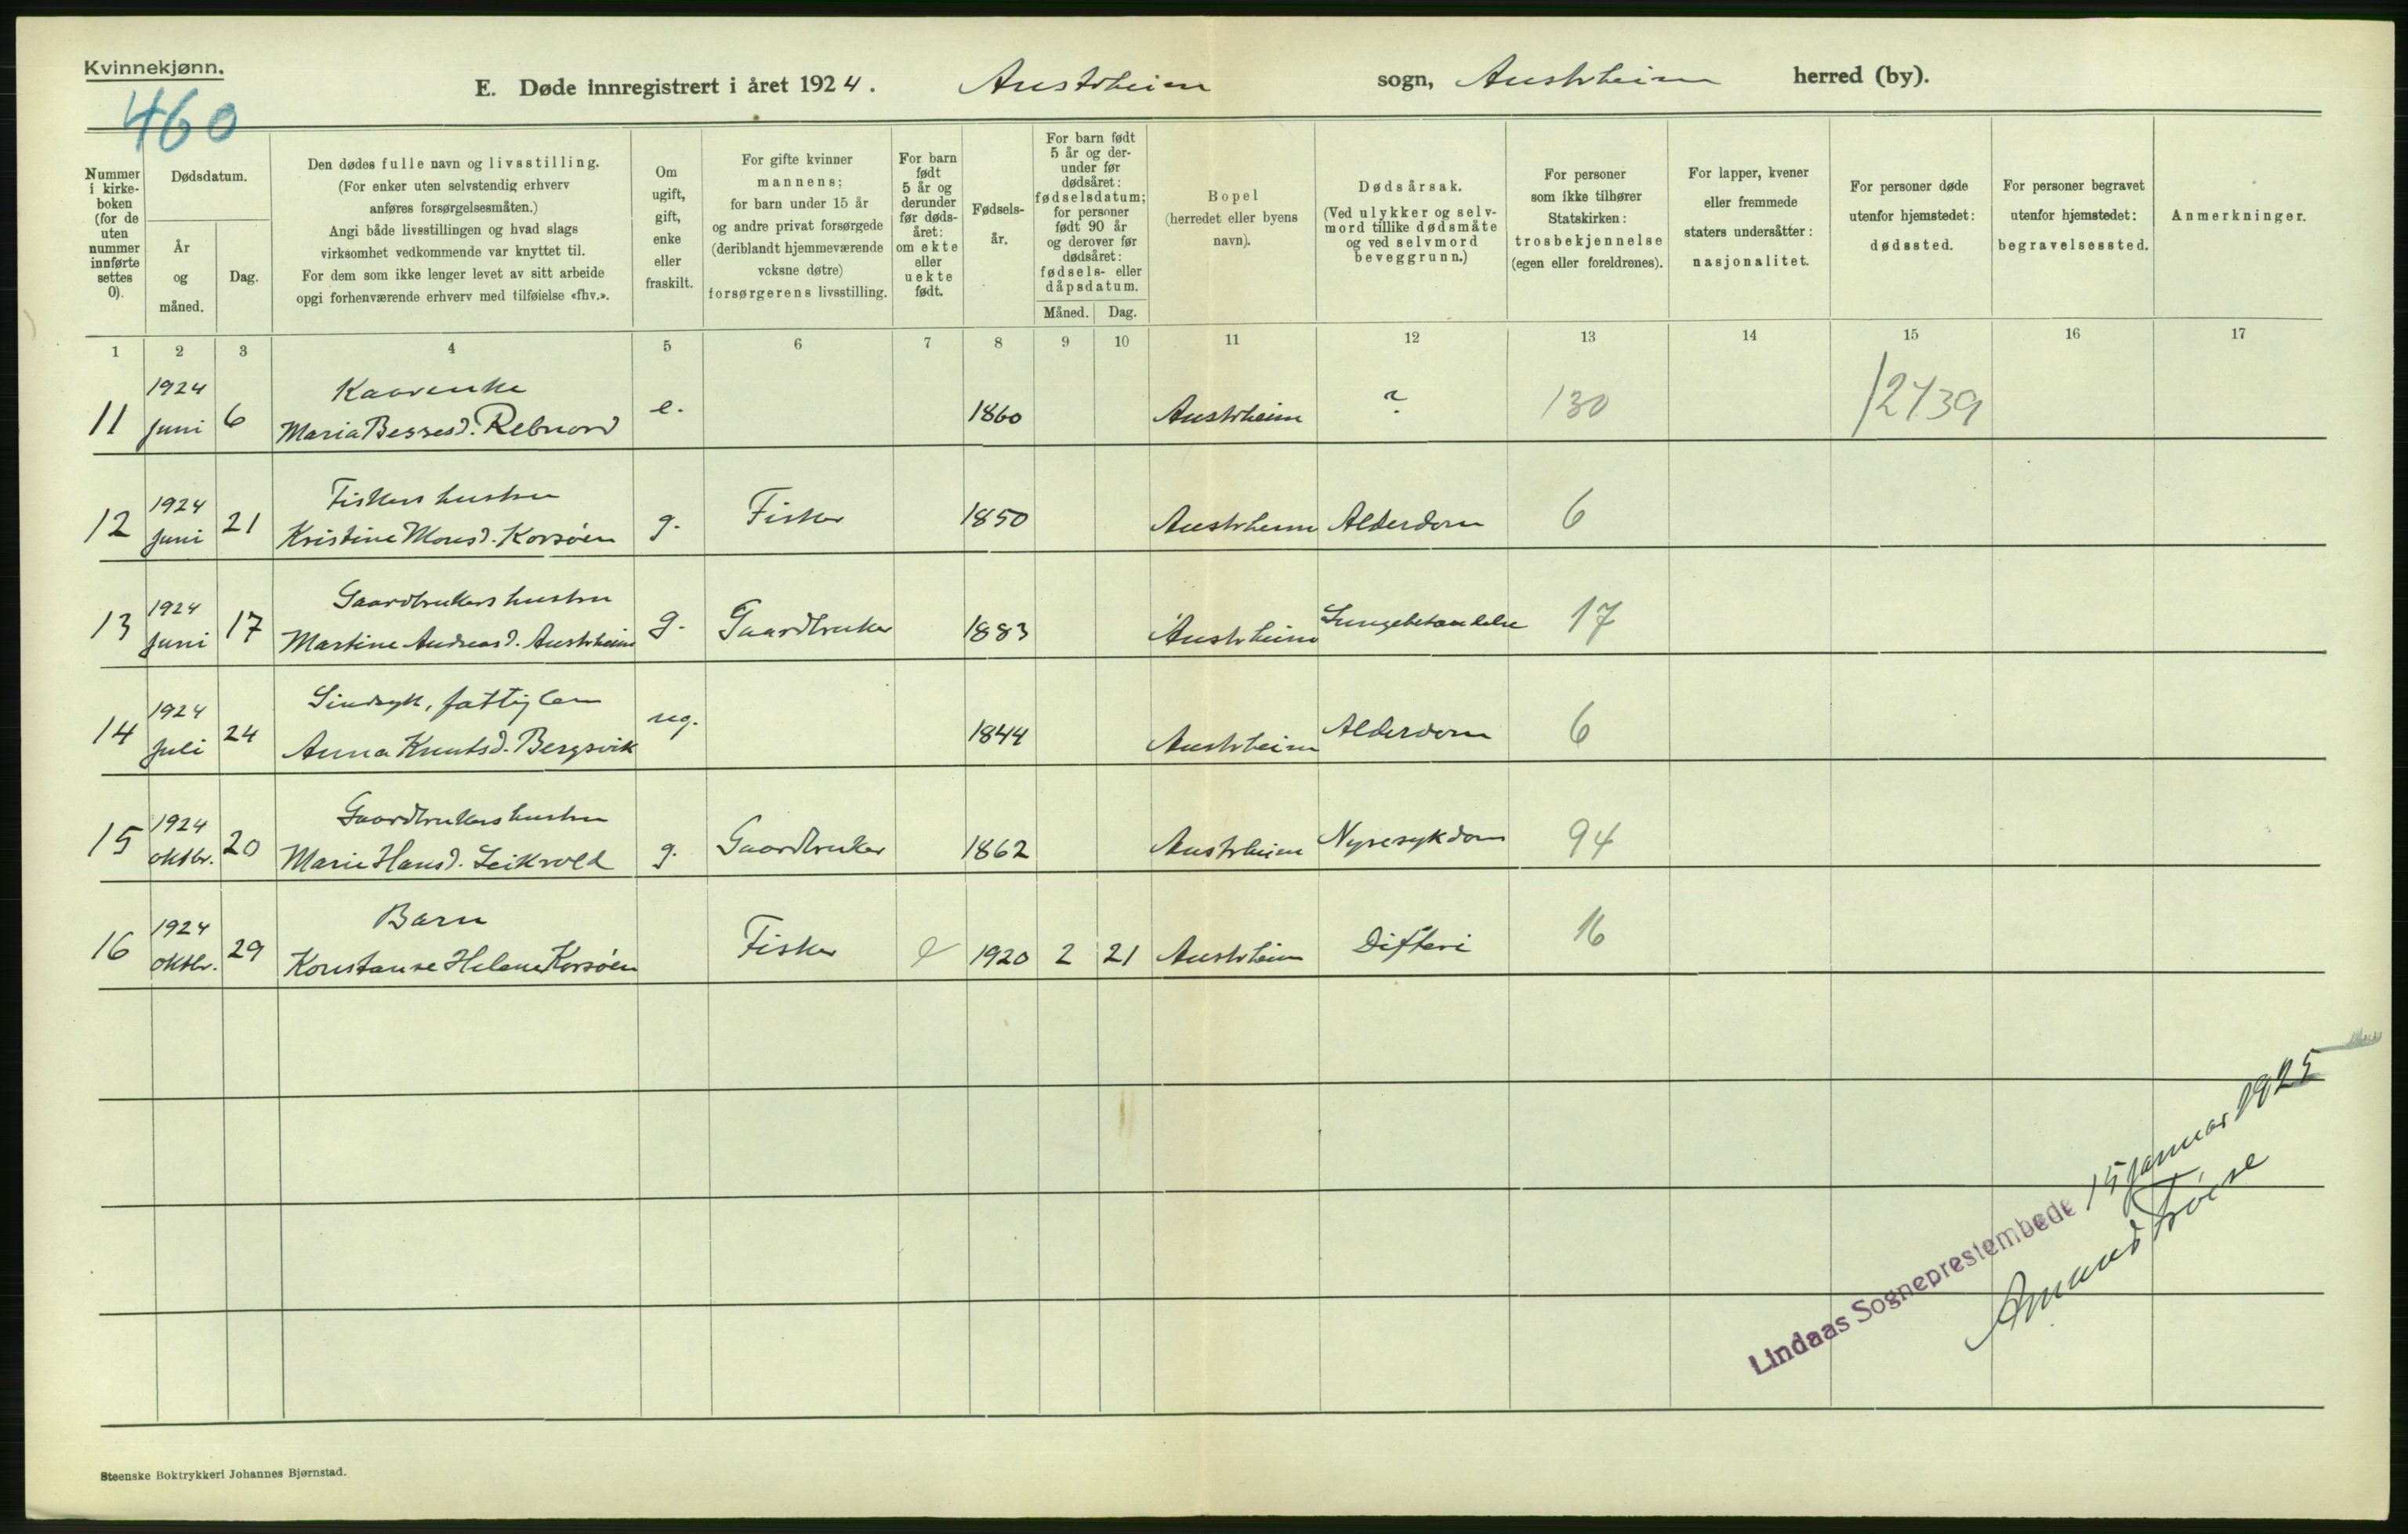 Kvinnekjønn.
460
E. Døde innregistrert i året 1924. Austrheim sogn, Austrheim herred (by).
Nummer i kirke-boken (for de uten nummer innførte settes 0).
Dødsdatum.
År og måned.
Dag.
Den dødes fulle navn og livsstilling.
(For enker uten selvstendig erhverv
anføres forsørgelsesmåten.)
Angi både livsstillingen og hvad slags
virksomhet vedkommende var knyttet til.
For dem som ikke lenger levet av sitt arbeide
opgi forhenværende erhverv med tilføielse «fhv.».
Om
ugift,
gift,
enke
eller
fraskilt.
For gifte kvinner
mannens;
for barn under 15 år
og andre privat forsørgede
(deriblandt hjemmeværende
vcksne døtre)
forsørgerens livsstilling.
For barn
født
5 år og
derunder
før døds-
året:
om ekte
eller
uekte
født.
Fødsels-
år.
For barn født
5 år og der-
under før
dødsåret:
fødselsdatum;
for personer
født 90 år
og derover før
dødsåret:
fødsels- eller
dåpsdatum.
Måned. Dag.
Bopel
(herredet eller byens
navn).
Dødsårsak.
(Ved ulykker og selv-
mord tillike dødsmåte
og ved selvmord
beveggrunn.)
For personer
som ikke tilhører
Statskirken:
trosbekjennelse
(egen eller foreldrenes).
For lapper, kvener
eller fremmede
staters undersåtter:
nasjonalitet.
For personer døde
utenfor hjemstedet:
dødssted.
For personer begravet
utenfor hjemstedet:
begravelsessted.
Anmerkninger.
1 2 3 4 5 6 7 8 9 10 11 12 13 14 15 16 17
1924 Kaarenke
11 Juni 6 Maria Bessesd. Rebnord e. 1860 Austrheim ? 130 12739
1924 Fiskers hustru
12 Juni 21 Kristine Monsd. Korsøen g. Fisker 1850 Austrheim Alderdom 6
1924 Gaardbrukers hustru
13 Juni 17 Martine Andreasd. Austrheim g. Gaardbruker 1883 Austrheim Lungebetændelse 17
1924 Sindsyk, fattiglem
14 Juli 24 Anna Knutsd. Bergsvik ug. 1844 Austrheim Alderdom 6
1924 Gaardbrukers hustru
15 Oktbr. 20 Marie Hansd. Leikvold g. Gaardbruker 1862 Austrheim Nyresykdom 94
1924 Barn
16 Oktbr. 29 Konstanse Helene Korsøen Fisker e 1920 2 21 Austrheim Difteri 16
Lindaas Sogneprestembede 15 januar 1925
Amund
Steenske Boktrykkeri Johannes Bjørnstad.